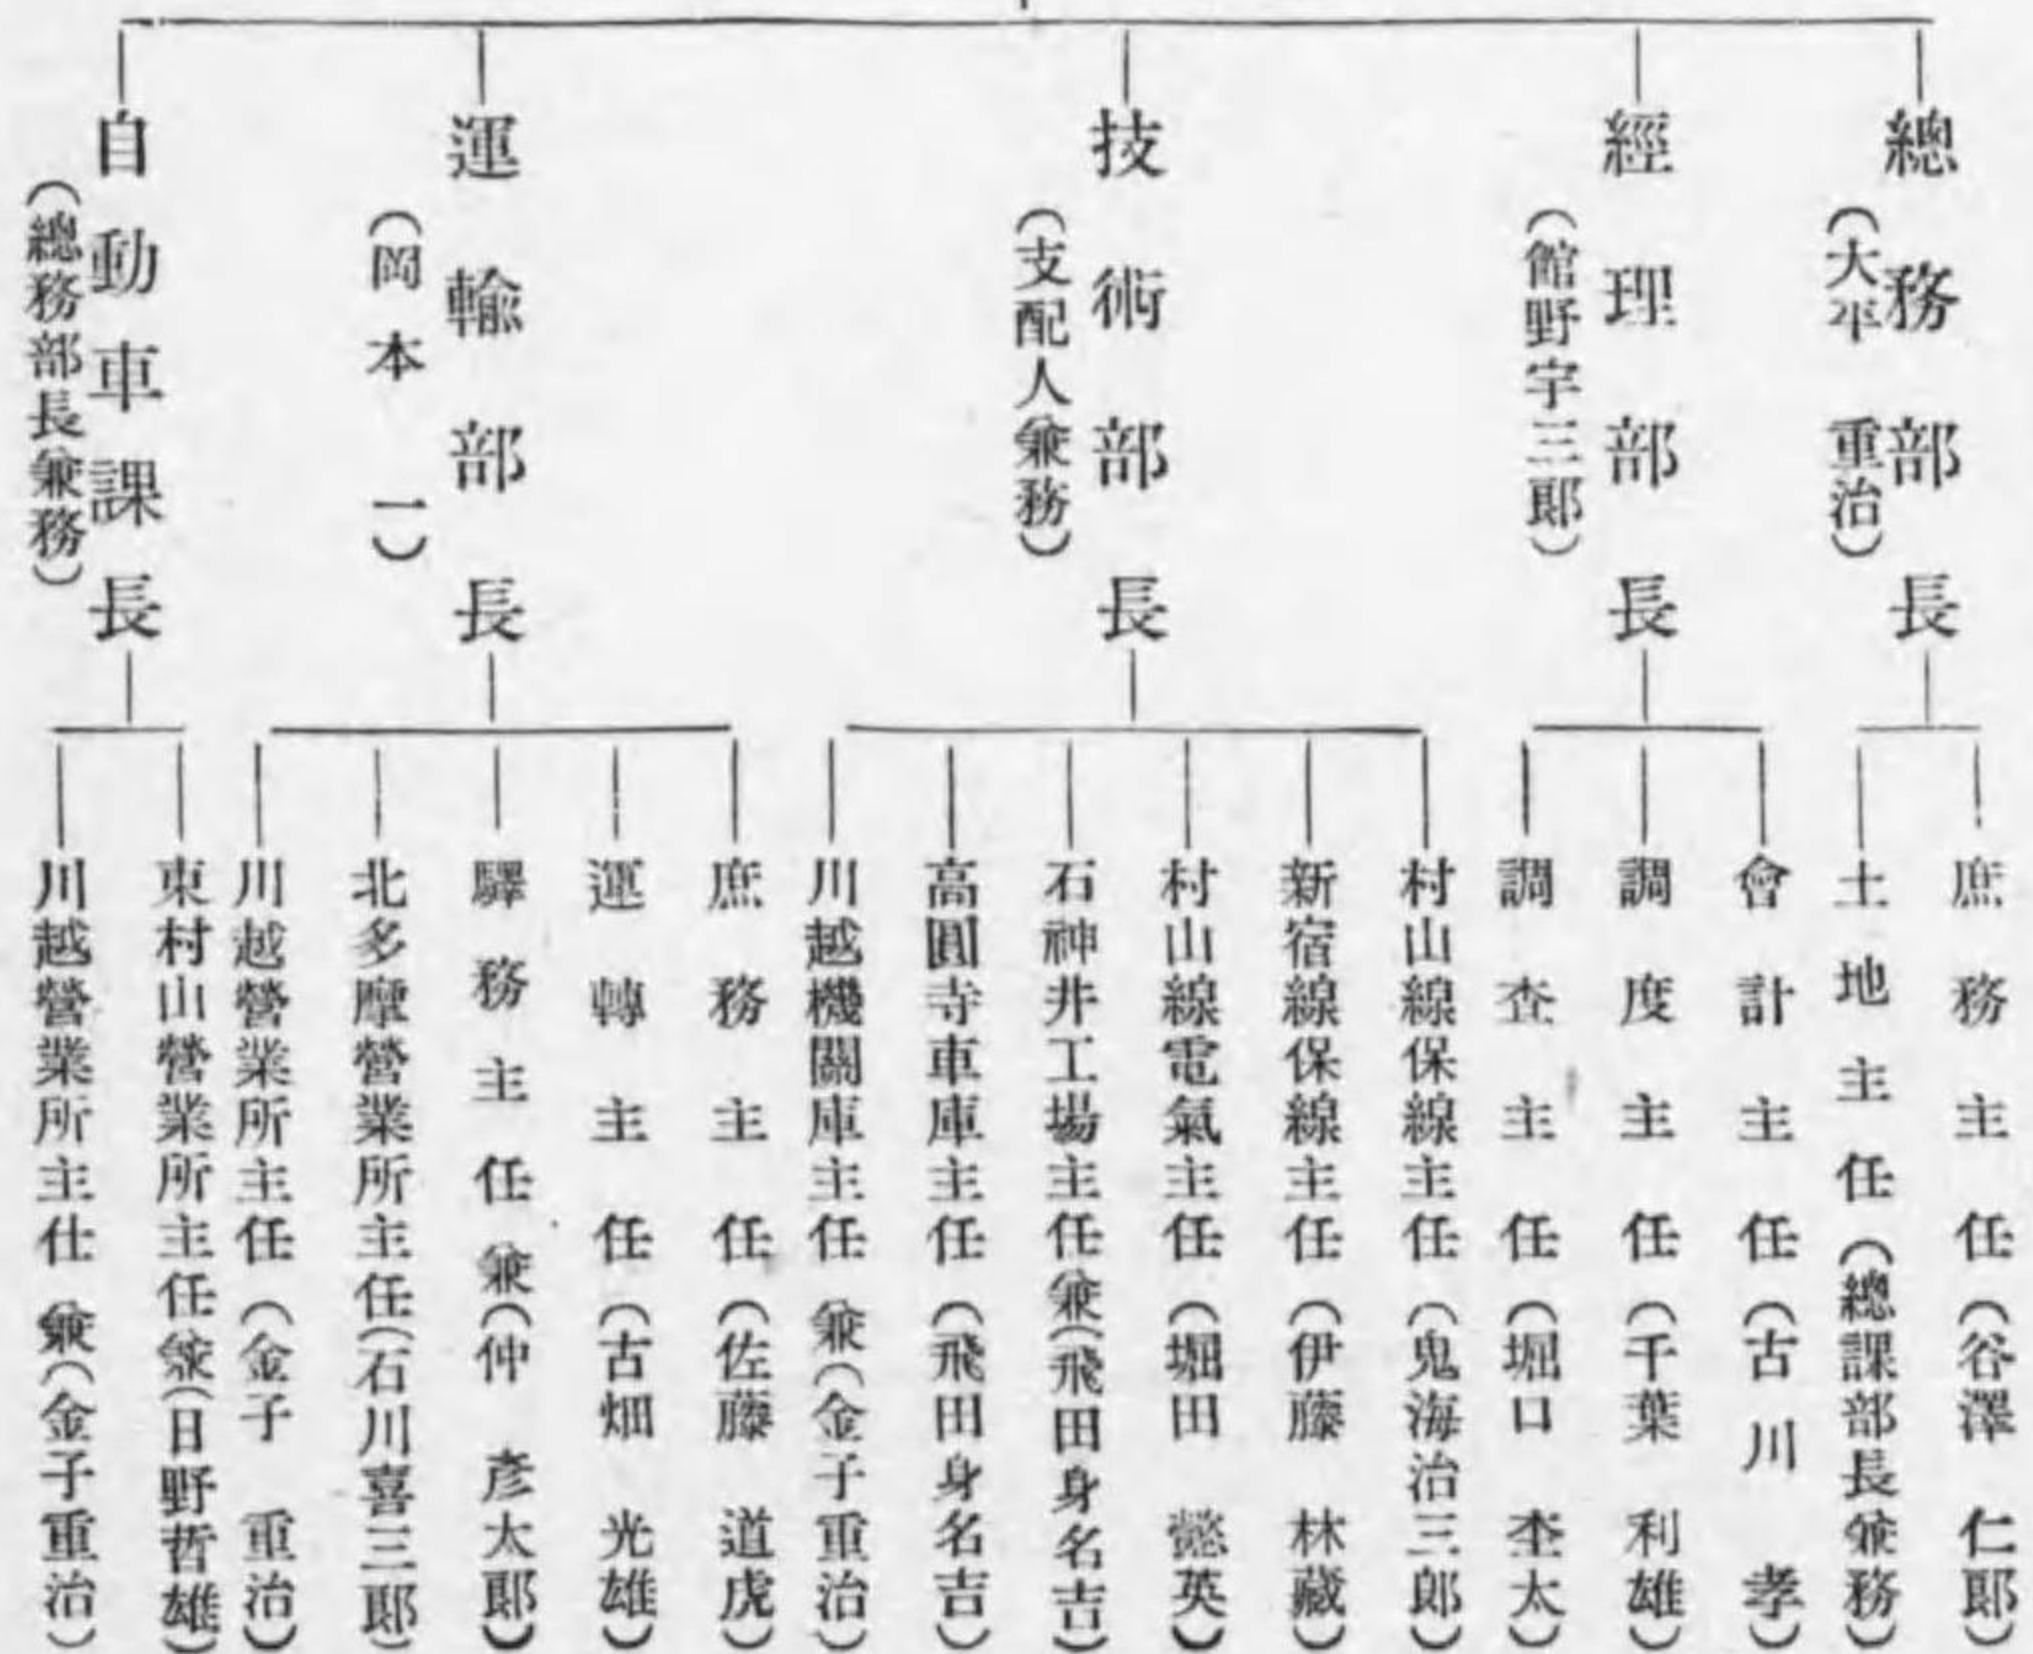 總務部長
(大平重治)
庶務主任(谷澤仁郞)
土地主任(總課部長兼務)
經理部長
(館野宇三郞)
會計主任(古川孝)
調度主任(千葉利雄)
調査主任(堀口杢太)
技術部長
(支配人兼務)
村山線保線主任(鬼海治三郎)
新宿線保線主任(伊藤林藏)
村山線電氣主任(堀田 英)
石神井工場主任兼(飛田身名吉)
高圓寺車庫主任(飛田身名吉)
川越機關庫主任兼(金子重治)
運輸部長
(岡本一)
庶務主任(佐藤道虎)
運轉主任(古畑光雄)
驛務主任兼(仲彦太郞)
北多摩營業所主任(石川喜三郞)
川越營業所主任(金子重治)
自動車課長
(總務部長兼務)
東村山營業所主任兼(日野哲雄)
川越營業所主仕兼(金子重治)